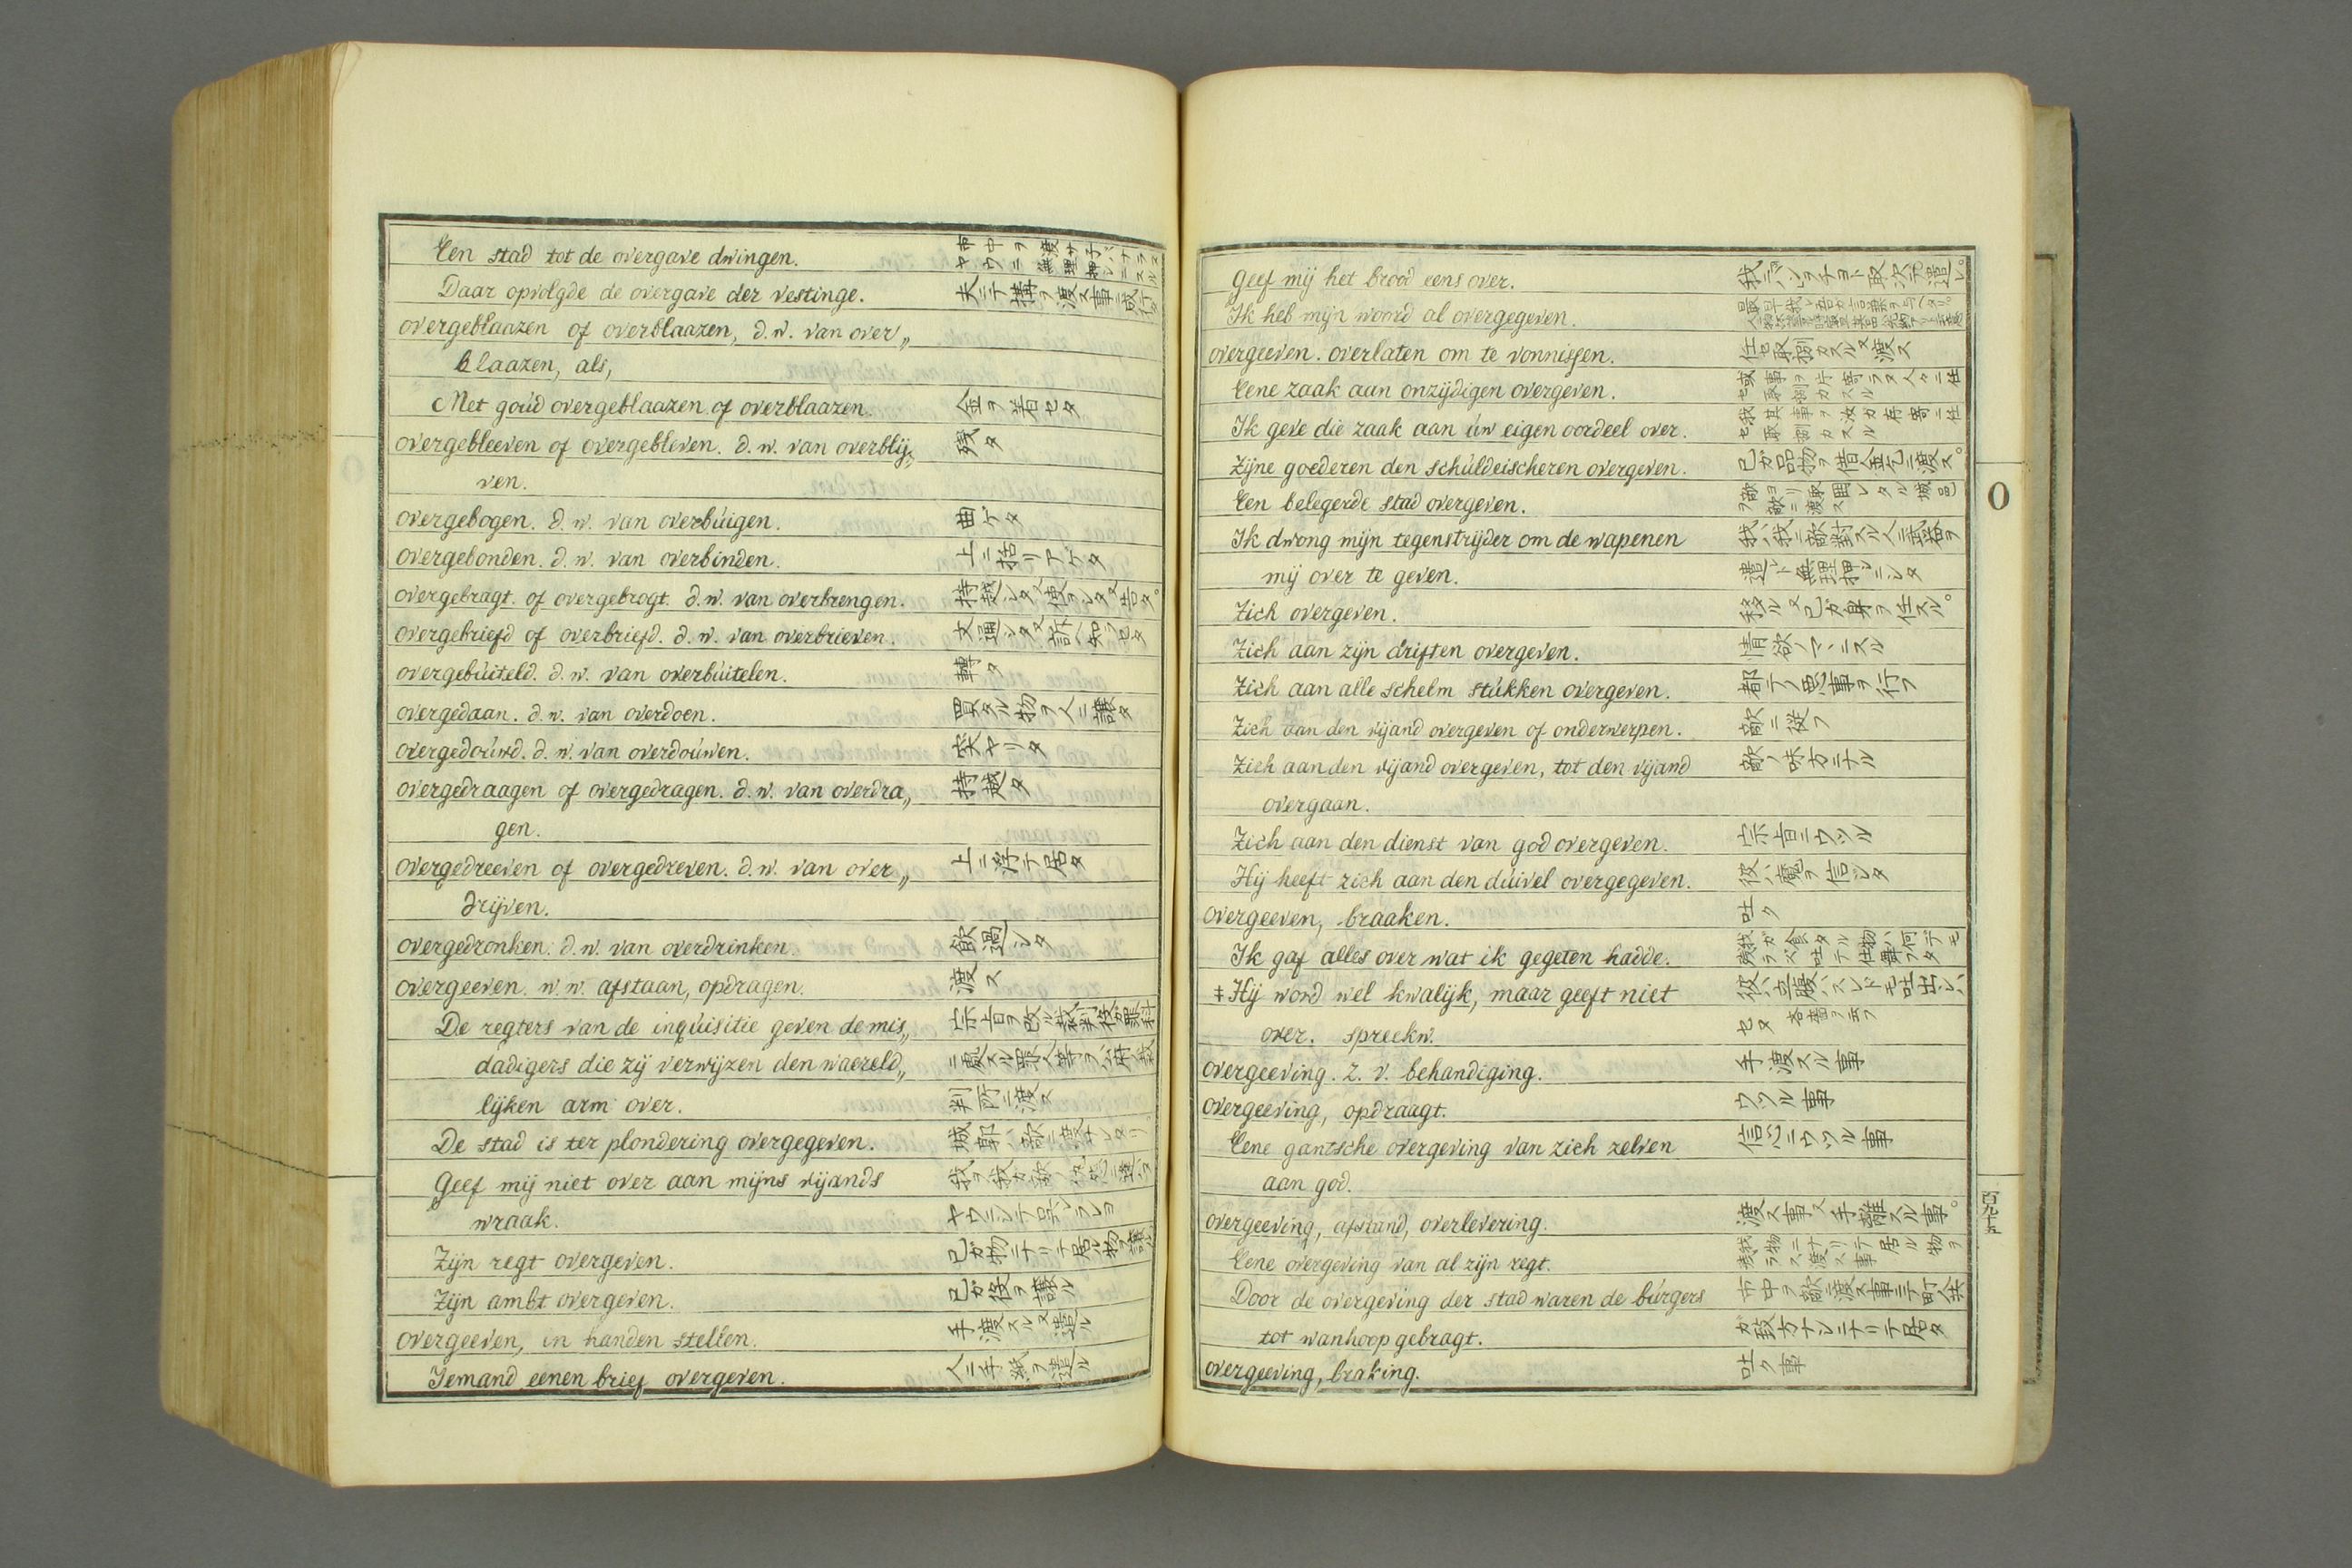 Een stad tot de overgave dwingen. 市中ヲ渡サ子バナラヌヤウニ無理押シニスル
Daar opvolgde de overgave der vestinge. 夫ニテ構ヲ渡ス事ニ成行タ
overgeblaazen of overblaazen, d. w. van over„
blaazen, als,
Met goúd overgeblaazen of overblaazen. 金ヲ着セタ
overgebleeven of overgebleven. d. w. van overblij„ 残タ
ven.
overgebogen. d. w. van overbúigen. 曲ゲタ
overgebonden. d. w. van overbinden. 上ニ括リアゲタ
overgebragt. of overgebrogt. d. w. van overbrengen. 持越シタ又使ヲシタ又告タ。
overgebriefd of overbriefd. d. w. van overbrieven. 文通シタ又訴ヘ知ラセタ
overgebúiteld. d. w. van overbúitelen. 轉タ
overgedaan. d. w. van overdoen. 買タル物ヲ人ニ譲タ
overgedoúwd. d. w. van overdoúwen. 突ヤリタ
overgedraagen of overgedragen. d. w. van overdra„ 持越タ
gen.
overgedreeven of overgedreven. d. w. van over„ 上ニ浮テ居タ
drijven.
overgedronken. d. w. van overdrinken. 飲過シタ
overgeeven. w. w. afstaan, opdragen. 渡ス
De regters van de inqúisitie geven de mis„ 宗旨ヲ改ル裁判役罪科
dadigers die zij verwijzen den waereld„ ニ處スル罪人等ヲ公府裁
lijken arm over. 判所ニ渡ス
De stad is ter plondering overgegeven. 城郭ハ敵ニ渡サレタリ。
Geef mij niet over aan mijns vijands 我ヲ我ガ敵ノ
wraak. ヤウニシテ呉レラレヨ
Zijn regt overgeven. 己ガ物ニナリテ居ル物ヲ譲ル
Zijn ambt overgeven. 己ガ役ヲ譲ル
overgeeven, in handen stellen. 手渡スル又遣ル
Iemand eenen brief overgeven. 人ニ手紙ヲ遣ル
Geef mij het brood eens over. 我ニパンヲチヨト取次テ遣レ。
Ik heb mijn woord al overgegeven.
overgeeven. overlaten om te vonnissen. 任セ取捌カスル又渡ス
Eene zaak aan onzijdigen overgeven. 或事ヲ片寄ラヌ人々ニ任セ取捌カスル
Ik geve die zaak aan úw eigen oordeel over. 我其事ヲ汝ガ存寄ニ任セ取捌カスル
Zijne goederen den schúldeischeren overgeven. 己ガ品物ヲ借金乞ニ渡ス。
Een belegerde stad overgeven. 敵ヨリ取囲レタル城邑ヲ敵ニ渡ス
Ik dwong mijn tegenstrijder om de wapenen 我ハ我ニ敵對スル人ニ武器ヲ
mij over te geven. 遣レト無理押シニシタ
Zich overgeven. 移ル又己ガ身ヲ任スル。
Zich aan zijn driften overgeven. 情欲ノマヽニスル
Zich aan alle schelm stúkken overgeven. 都テノ悪事ヲ行フ
Zich aan den vijand overgeven of onderwerpen. 敵ニ従フ
Zich aan den vijand overgeven, tot den vijand 敵ノ味方ニナル
overgaan.
Zich aan den dienst van god overgeven. 宗旨ニウツル
Hij heeft zich aan den dúivel overgegeven. 彼ハ魔ヲ信シタ
overgeeven, braaken. 吐ク
Ik gaf alles over wat ik gegeten hadde. 我ガ食タル物ハ何デモ残ラズ吐テ仕舞フタ
‡ Hij word wel kwalijk, maar geeft niet 彼ハ立腹ハスレドモ吐出シハ
over. spreekw. セヌ 吝嗇ヲ云フ
overgeeving. z. v. behandiging. 手渡スル事
overgeeving, opdraagt. ウツル事
Eene gantsche overgeving van zich zelven 信心ニウツル事
aan god.
overgeeving, afstand, overlevering. 渡ス事又手離スル事。
Eene overgeving van al zijn regt. 我ガ物ニナリテ居ル物ヲ残ラズ渡ス事
Door de overgeving der stad waren de búrgers 市中ヲ敵ニ渡ス事ニテ町人共
tot wanhoop gebragt. ガ致方ナシニナリテ居タ
overgeeving, braking. 吐ク事
O